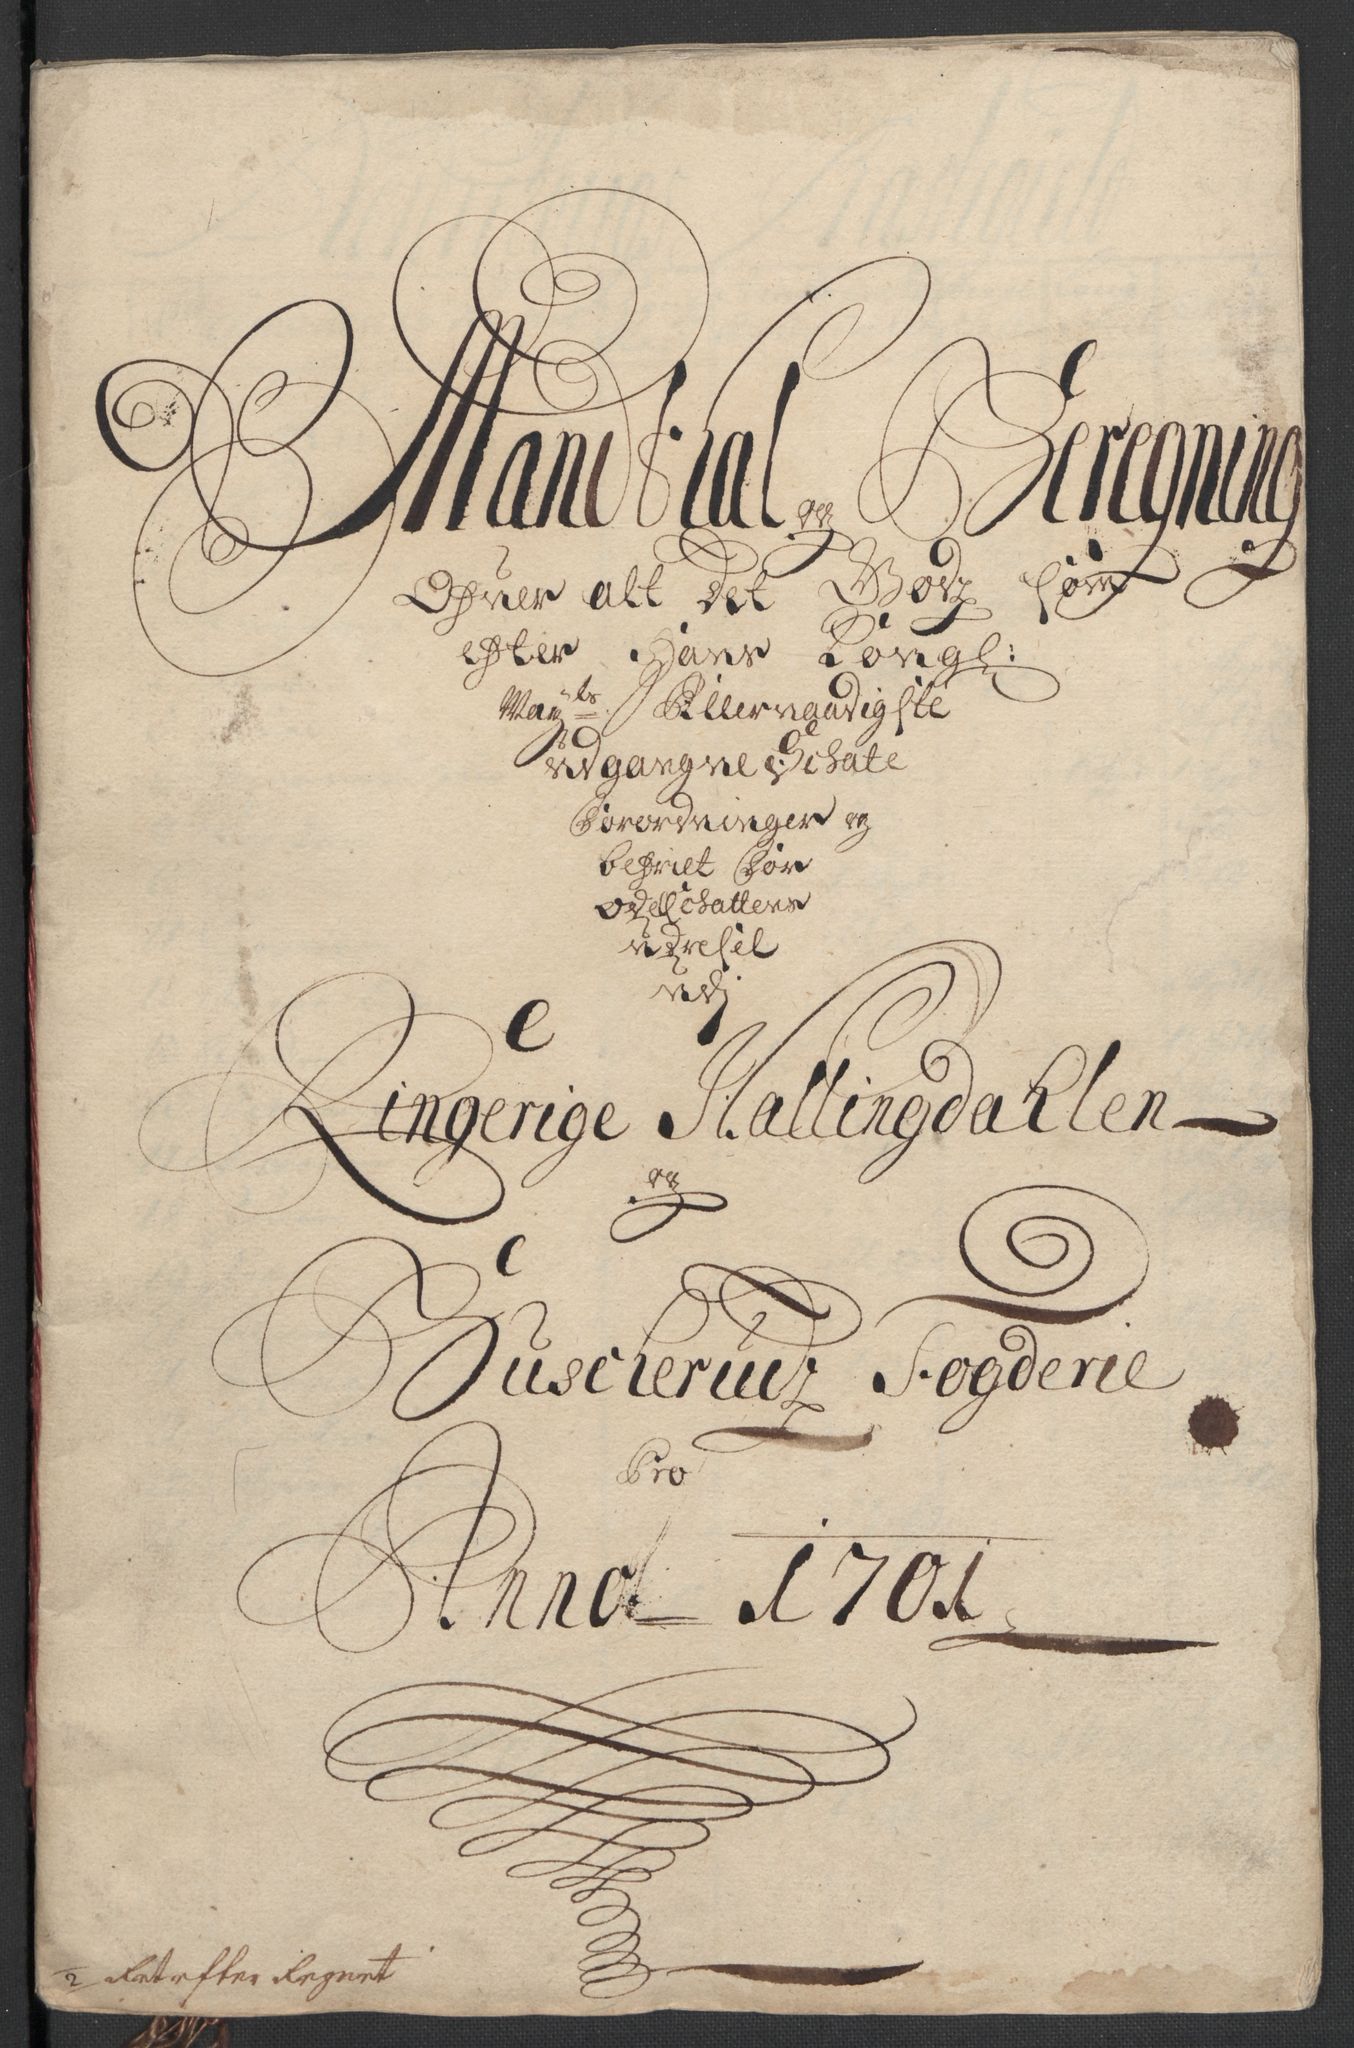 Mandtal og Beregning
Ofver alt det Godz som
efter Hans Kongl:
May:ts Allernaadigste
udgangne Schate
Forordninger er
befriet for
odelschattens
udresel
udj
Ringerige Hallingdahlen
og
Buscheruds Fogderie
Pro
Anno 1701
Ret efter Regnet